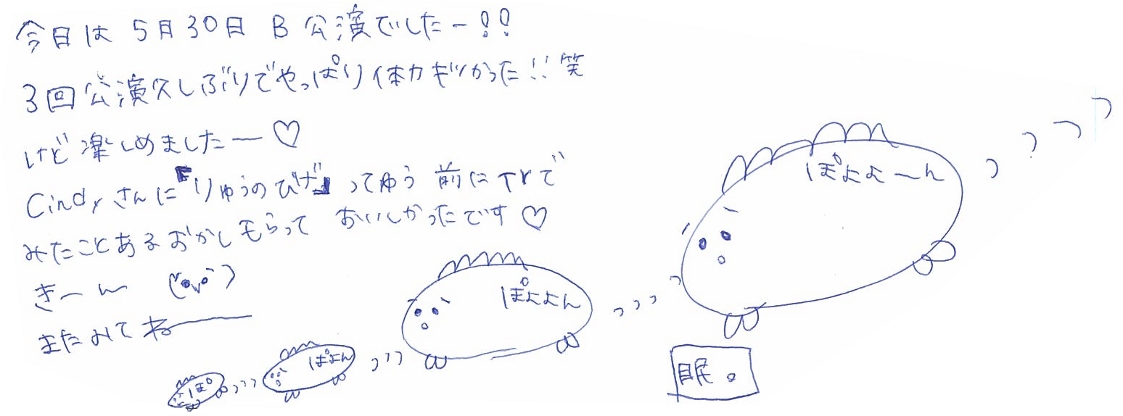 今日は 5月30日 B 公演でしたー!!
3回公演久しぶりでやっぱり体力キツかった!!笑
けど楽しめましたー♡
Cindyさんに『りゅうのひげ』ってゆう 前にTVで
みたことあるおかしもらって おいしかったです♡
きーん
またみてねー
ぽよよーん
ぽよよん
ぽよん
ぽ
眠。